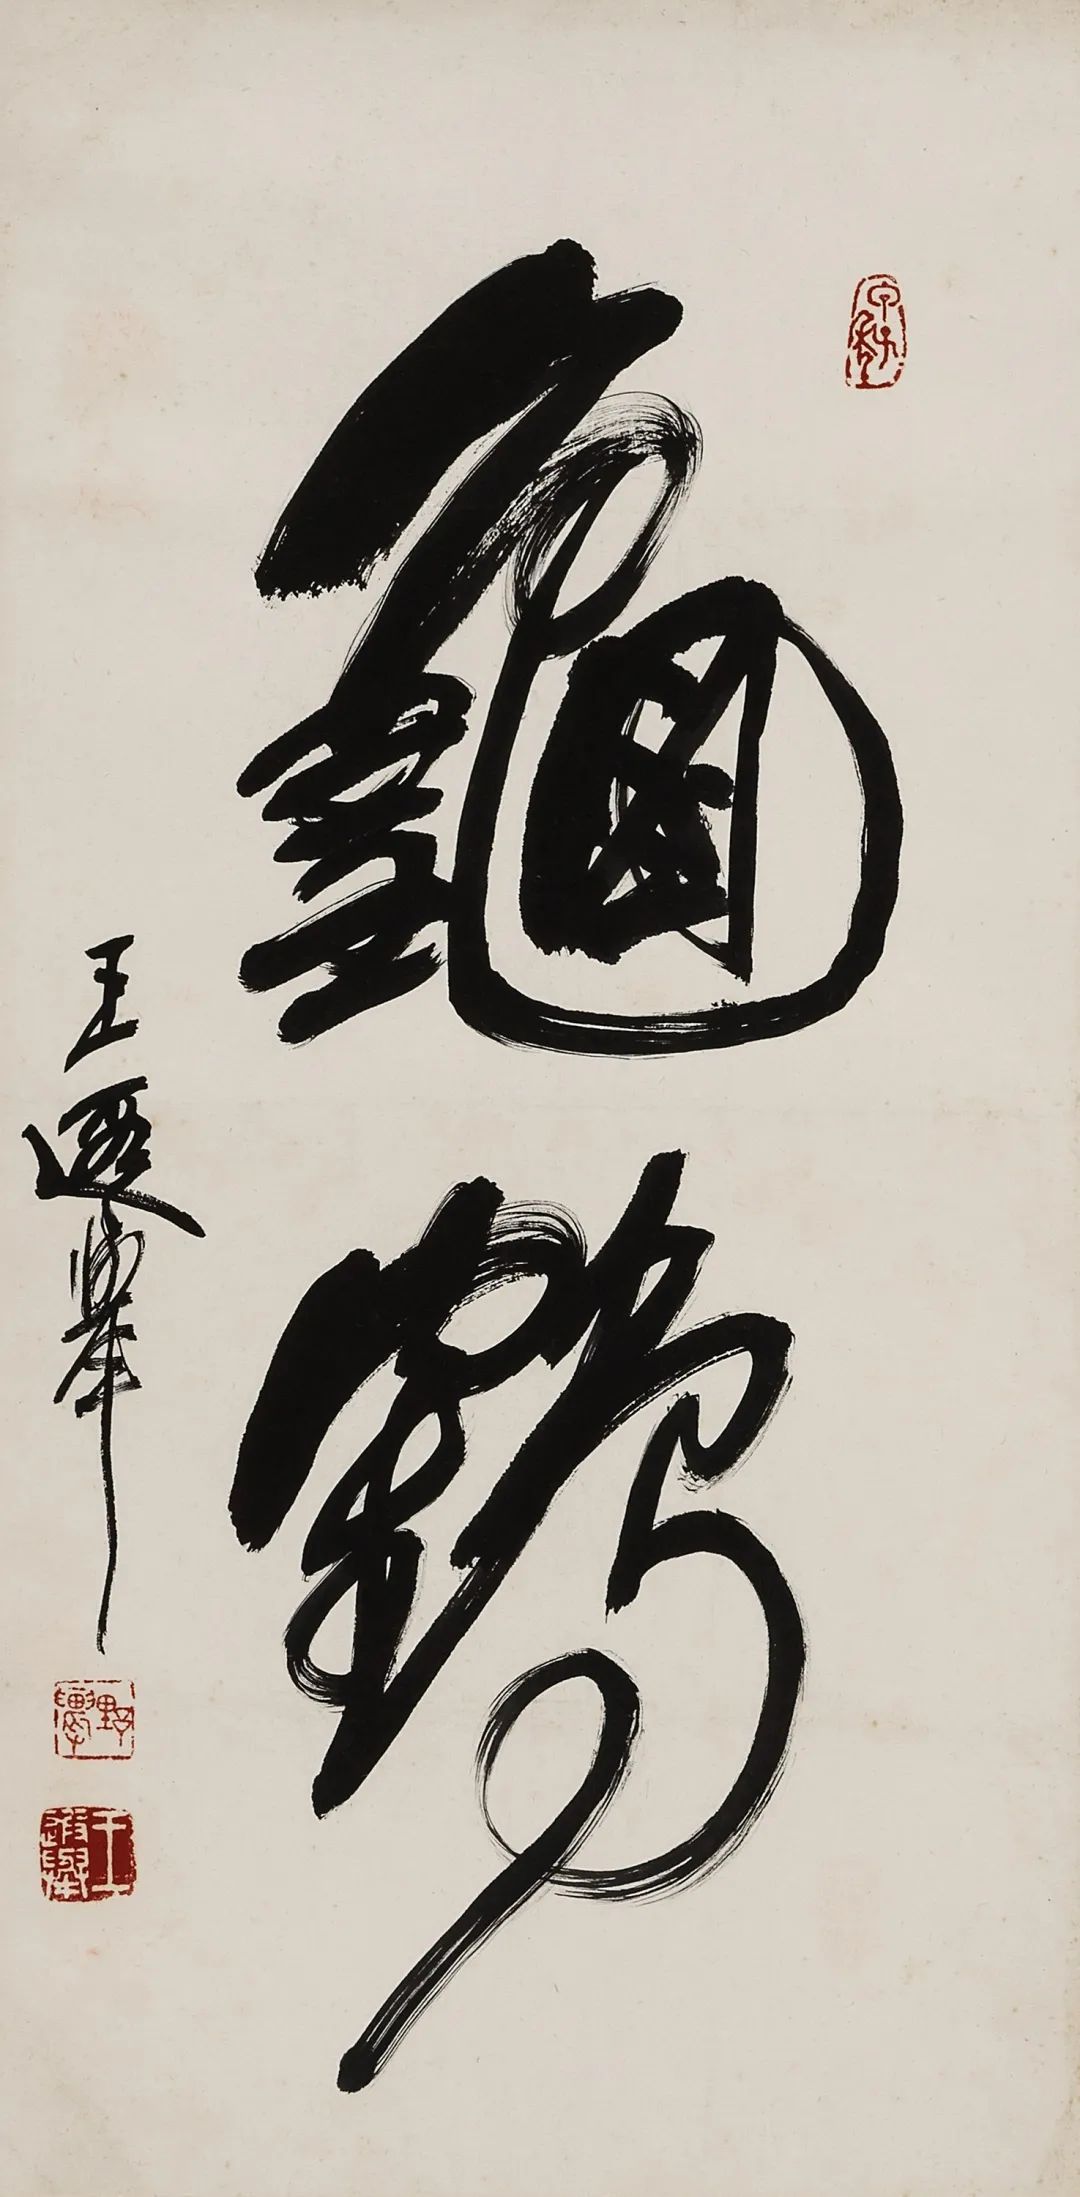 龜鶴
王遐舉
野鶴
王遐舉